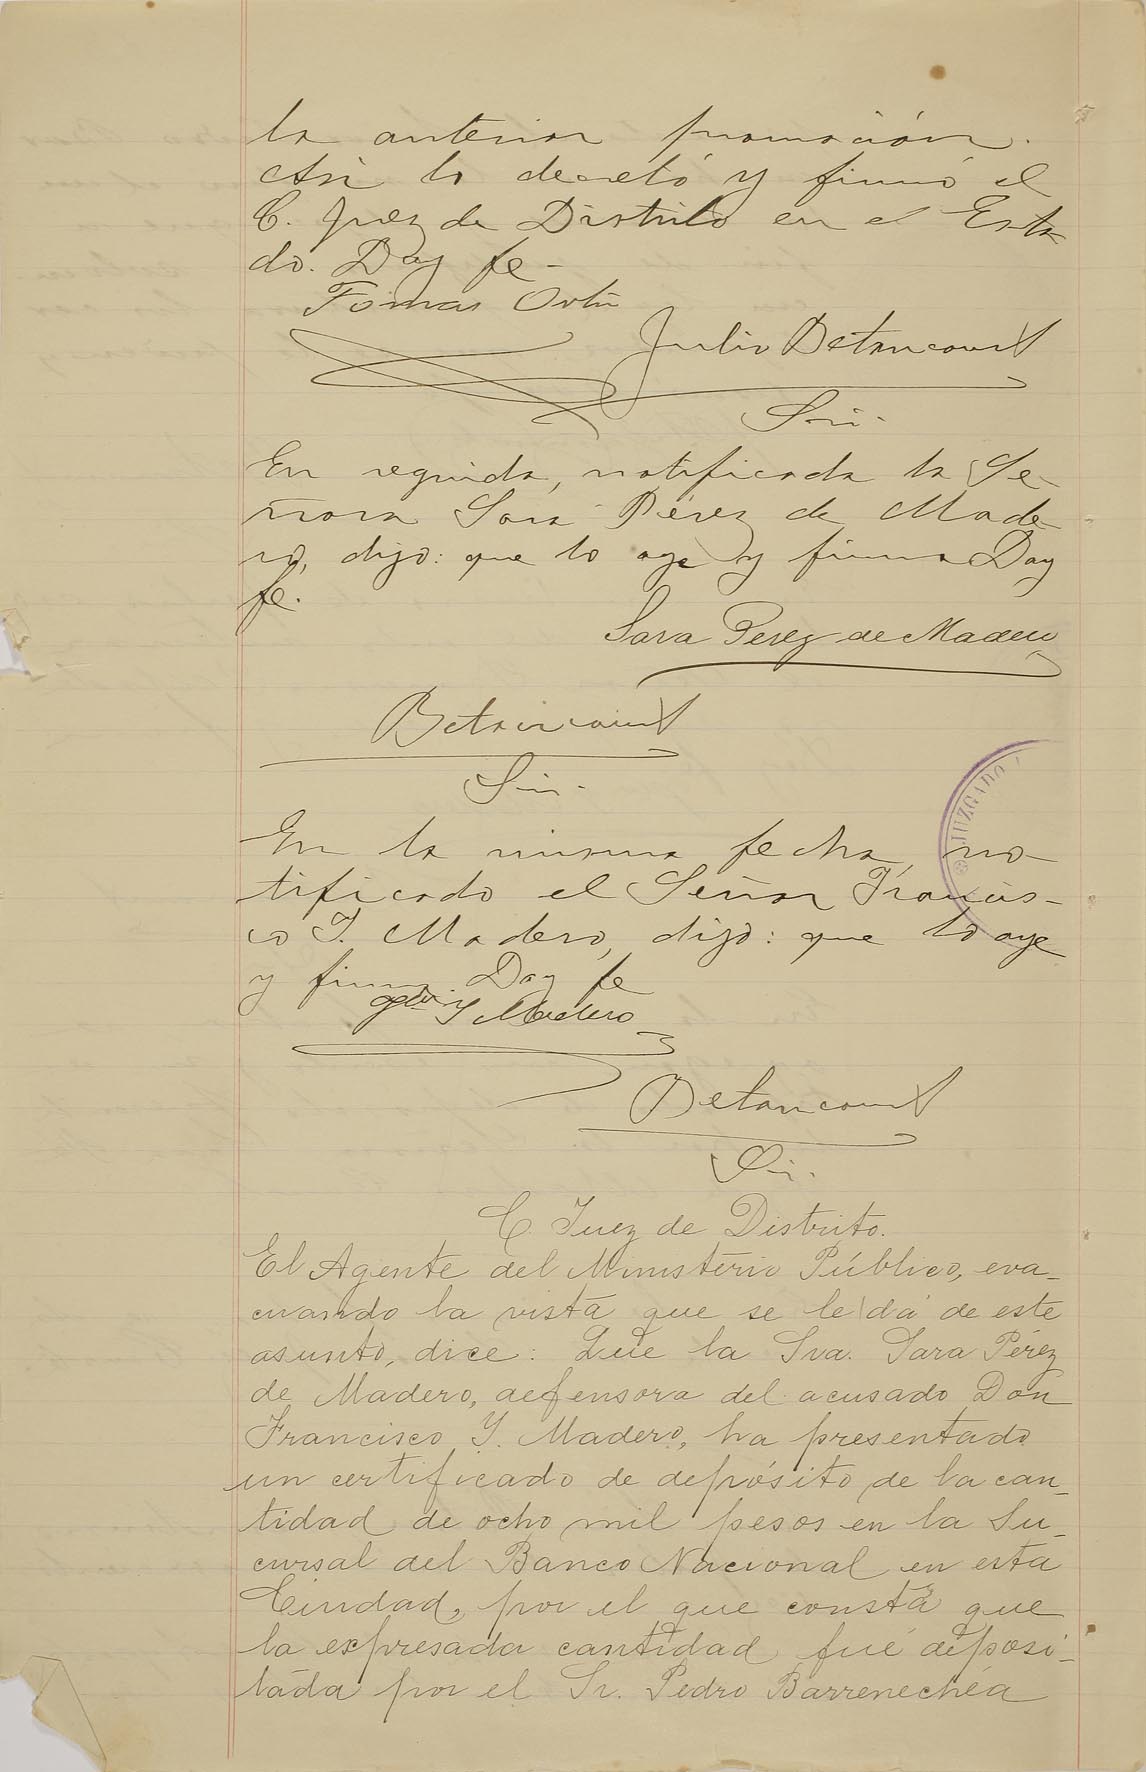 la anterior promoción.
Asi lo decretó y firmó el
C. Juez de Distrito en el Esta
do. Doy fe-
Tomas Ortiz
Julio Betancourt
Srio.
En seguida, notificada la Se-
ñora Sara Pérez de Made-
ro, dijo: que lo oye y firma Doy
fe.
Sara Perez de Madero
Betancourt
Srio.
En la misma fecha, no-
tificado el Señor Francis-
co I. Madero, dijo: que lo oye
y firma Doy fe
JUZGADO
I Madero
Betancourt
Srio.
C. Juez de Distrito.
El Agente del Ministerio Público, eva-
cuando la vista que se le dá de este
asunto, dice: Que la Sra. Sara Pérez
de Madero, defensora del acusado Don
Francisco Y. Madero, ha presentado
un certificado de depósito de la can-
tidad de ocho mil pesos en la Su-
cursal del Banco Nacional en esta
Ciudad, por el que consta que
la expresada cantidad fué deposi-
tada por el Sr. Pedro Barrenechéa